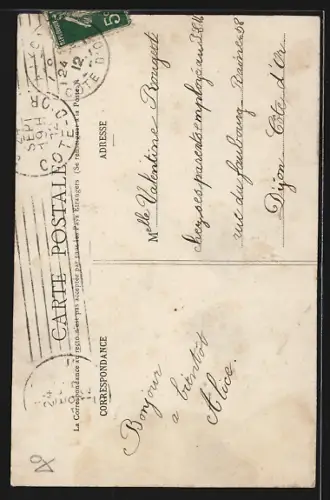 CARTE POSTALE
La Correspondance au recto n'est pas acceptée par tous les Pays étrangers (Se renseigner à la Poste)
CORRESPONDANCE
ADRESSE
Bonjour
a bientôt
Alice
Melle Valentine
chez ses parents employé au
rue du faubourg Raines 58
Dijon Côte d'Or
5c
24
12
SEPT
CÔTE D'OR